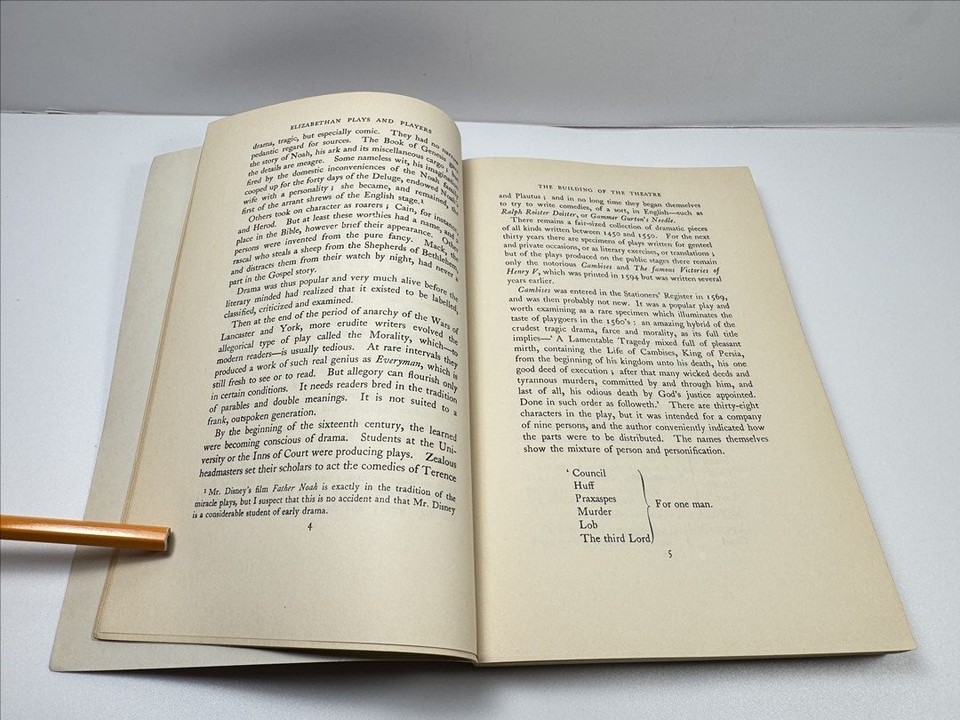 ELIZABETHAN PLAYS AND PLAYERS
drama, tragic, but especially comic. They had no
pedantic regard for sources. The Book of Genesis
the story of Noah, his ark and its miscellaneous cargo ; but
the details are meagre. Some nameless wit, his imagination
fired by the domestic inconveniences of the Noah family
cooped up for the forty days of the Deluge, endowed Noah's
wife with a personality ; she became, and remained, the
first of the arrant shrews of the English stage.¹
Others took on character as roarers ; Cain, for instance,
and Herod. But at least these worthies had a name, and a
place in the Bible, however brief their appearance. Other
persons were invented from the pure fancy. Mack, the
rascal who steals a sheep from the Shepherds of Bethlehem
and distracts them from their watch by night, had never a
part in the Gospel story.
Drama was thus popular and very much alive before the
literary minded had realized that it existed to be labelled,
classified, criticized and examined.
Then at the end of the period of anarchy of the Wars of
Lancaster and York, more erudite writers evolved the
allegorical type of play called the Morality, which—to
modern readers—is usually tedious. At rare intervals they
produced a work of such real genius as Everyman, which is
still fresh to see or to read. But allegory can flourish only
in certain conditions. It needs readers bred in the tradition
of parables and double meanings. It is not suited to a
frank, outspoken generation.
By the beginning of the sixteenth century, the learned
were becoming conscious of drama. Students at the Uni-
versity or the Inns of Court were producing plays. Zealous
headmasters set their scholars to act the comedies of Terence
¹ Mr. Disney's film Father Noah is exactly in the tradition of the
miracle plays, but I suspect that this is no accident and that Mr. Disney
is a considerable student of early drama.
4
THE BUILDING OF THE THEATRE
and Plautus ; and in no long time they began themselves
to try to write comedies, of a sort, in English—such as
Ralph Roister Doister, or Gammer Gurton's Needle.
There remains a fair-sized collection of dramatic pieces
of all kinds written between 1450 and 1550. For the next
thirty years there are specimens of plays written for genteel
and private occasions, or as literary exercises, or translations ;
but of the plays produced on the public stages there remain
only the notorious Cambises and The famous Victories of
Henry V, which was printed in 1594 but was written several
years earlier.
Cambises was entered in the Stationers' Register in 1569,
and was then probably not new. It was a popular play and
worth examining as a rare specimen which illuminates the
taste of playgoers in the 1560's : an amazing hybrid of the
crudest tragic drama, farce and morality, as its full title
implies—' A Lamentable Tragedy mixed full of pleasant
mirth, containing the Life of Cambises, King of Persia,
from the beginning of his kingdom unto his death, his one
good deed of execution ; after that many wicked deeds and
tyrannous murders, committed by and through him, and
last of all, his odious death by God's justice appointed.
Done in such order as followeth.' There are thirty-eight
characters in the play, but it was intended for a company
of nine persons, and the author conveniently indicated how
the parts were to be distributed. The names themselves
show the mixture of person and personification.
' Council
Huff
Praxaspes
Murder
Lob
The third Lord
For one man.
5